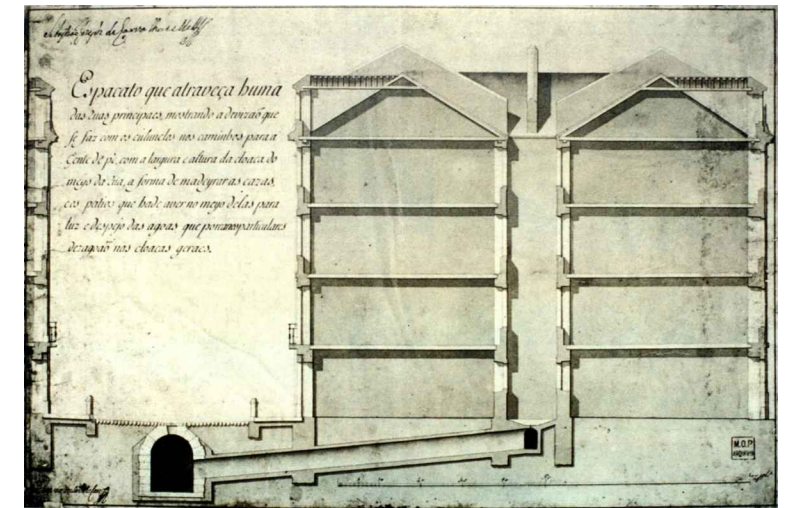 Espacato que atraveça huma
das ruas principaes, mostrando a devizaõ que
se faz com os culunelos nos caminhos para a
Gente de pé, com a largura e altura da cloaca do
meyo da rua, a forma de madeyrar as cazas,
e os patios que hade aver no meyo delas para
luz e despejo das agoas que por particulares
dezagoaõ nas cloacas geraes.
M.O.P.